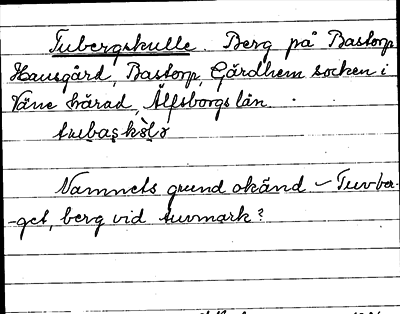 Tubergskulle. Berg på Bastorp
Hansgård, Bastorp, Gärdhem socken i
Väne härad, Älfsborgs län.
Namnets grund okänd – Tuvber-
-get, berg vid tuvmark?